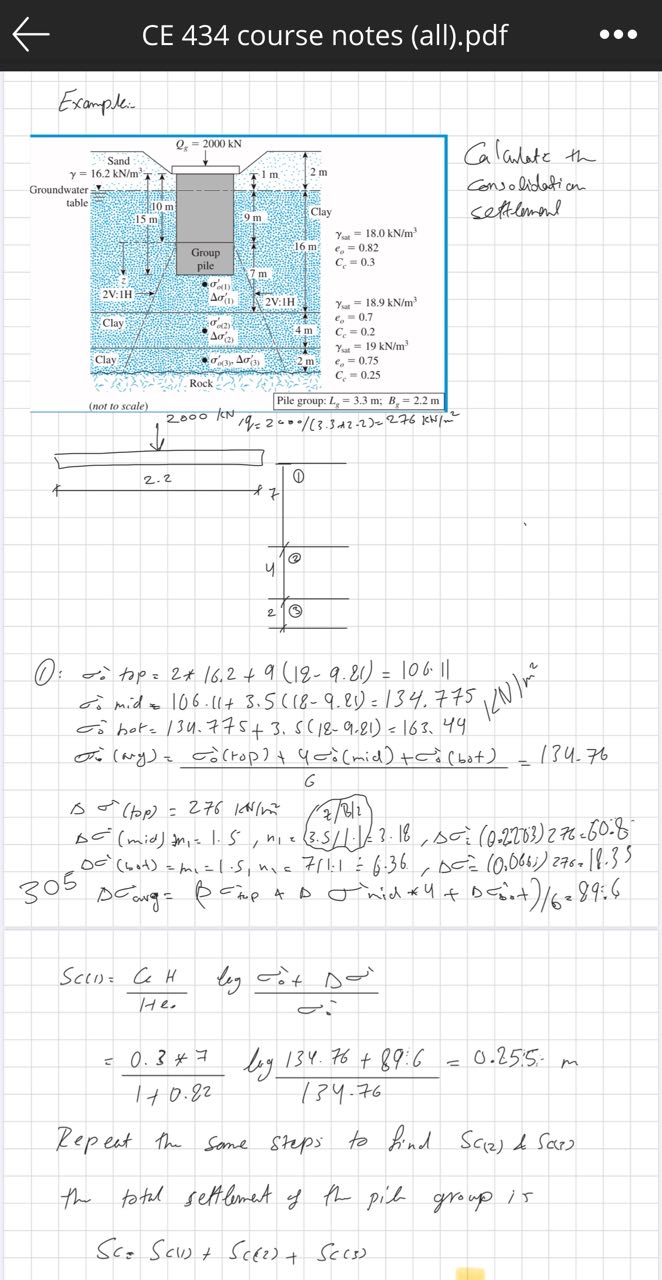 CE 434 course notes (all).pdf
Example:-
Calculate the
consolidation
settlement
Qg = 2000 kN
Sand
γ = 16.2 kN/m³
Groundwater
table
1 m
2 m
10 m
15 m
9 m
Clay
16 m
γsat = 18.0 kN/m³
eo = 0.82
Cc = 0.3
Group
pile
z
7 m
2V:1H
σ'o(1)
Δσ'(1)
2V:1H
γsat = 18.9 kN/m³
eo = 0.7
Cc = 0.2
Clay
σ'o(2)
Δσ'(2)
4 m
γsat = 19 kN/m³
eo = 0.75
Cc = 0.25
Clay
σ'o(3), Δσ'(3)
2 m
Rock
(not to scale)
Pile group: Lg = 3.3 m; Bg = 2.2 m
2000 kN, q = 2000/(3.3*2.2) = 276 kN/m²
2.2
7
①
4
②
2
③
①: σ'o top = 2*16.2 + 9(18-9.81) = 106.11
σ'o mid = 106.11 + 3.5(18-9.81) = 134.775 kN/m²
σ'o bot = 134.775 + 3.5(18-9.81) = 163.44
σ'o (avg) = σ'o(top) + 4σ'o(mid) + σ'o(bot) / 6 = 134.76
Δσ'(top) = 276 kN/m² z/B/2
Δσ'(mid) m1 = 1.5, n1 = (3.5/1.1) = 3.18, Δσ' = (0.2203) 276 = 60.8
Δσ'(bot) = m1 = 1.5, n1 = 7/1.1 = 6.36, Δσ' = 276 = 18.35
305 Δσ'avg = + Δσ'mid*4 + Δσ'bot)/6 = 89.6
Sc(1) = Cc H / 1+eo log σ'o + Δσ' / σ'o
= 0.3*7 / 1+0.82 log 134.76 + 89.6 / 134.76 = 0.255 m
Repeat the same steps to find Sc(2) & Sc(3)
the total settlement of the pile group is
Sc = Sc(1) + Sc(2) + Sc(3)